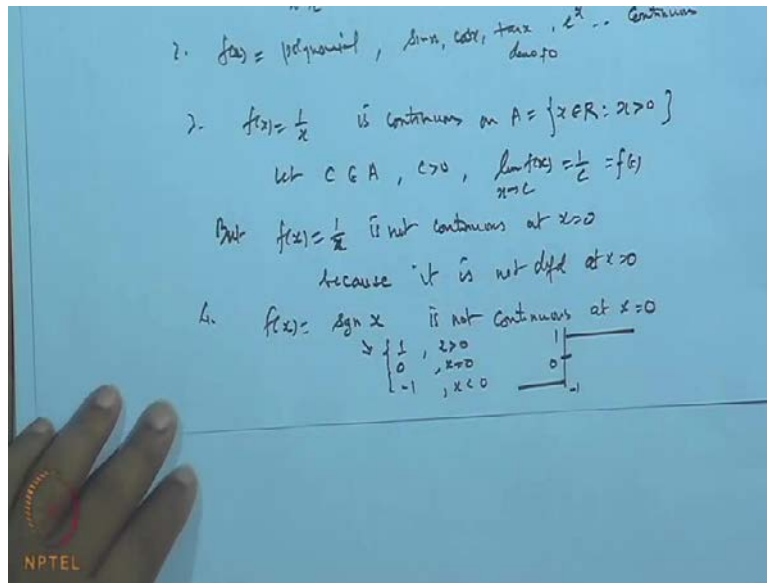 2. f(x) = polynomial, sinx, cosx, tanx, e^x .. Continuous
deno ≠0
3. f(x) = 1/x is continuous on A = {x ∈ R : x > 0}
Let C ∈ A, C>0, lim x→c f(x) = 1/C = f(c)
But f(x) = 1/x is not continuous at x=0
because it is not dfd at x=0
4. f(x) = sgn x is not continuous at x=0
→ { 1, x>0
0, x=0
-1, x<0
1
0
-1
NPTEL